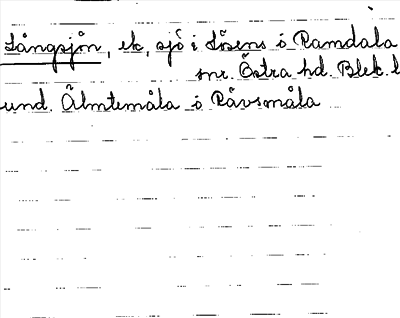 Långsjön, ek, sjö i Lösens o Ramdala
snr. Östra hd. Blek. l
und. Älmtemåla o Råvsmåla